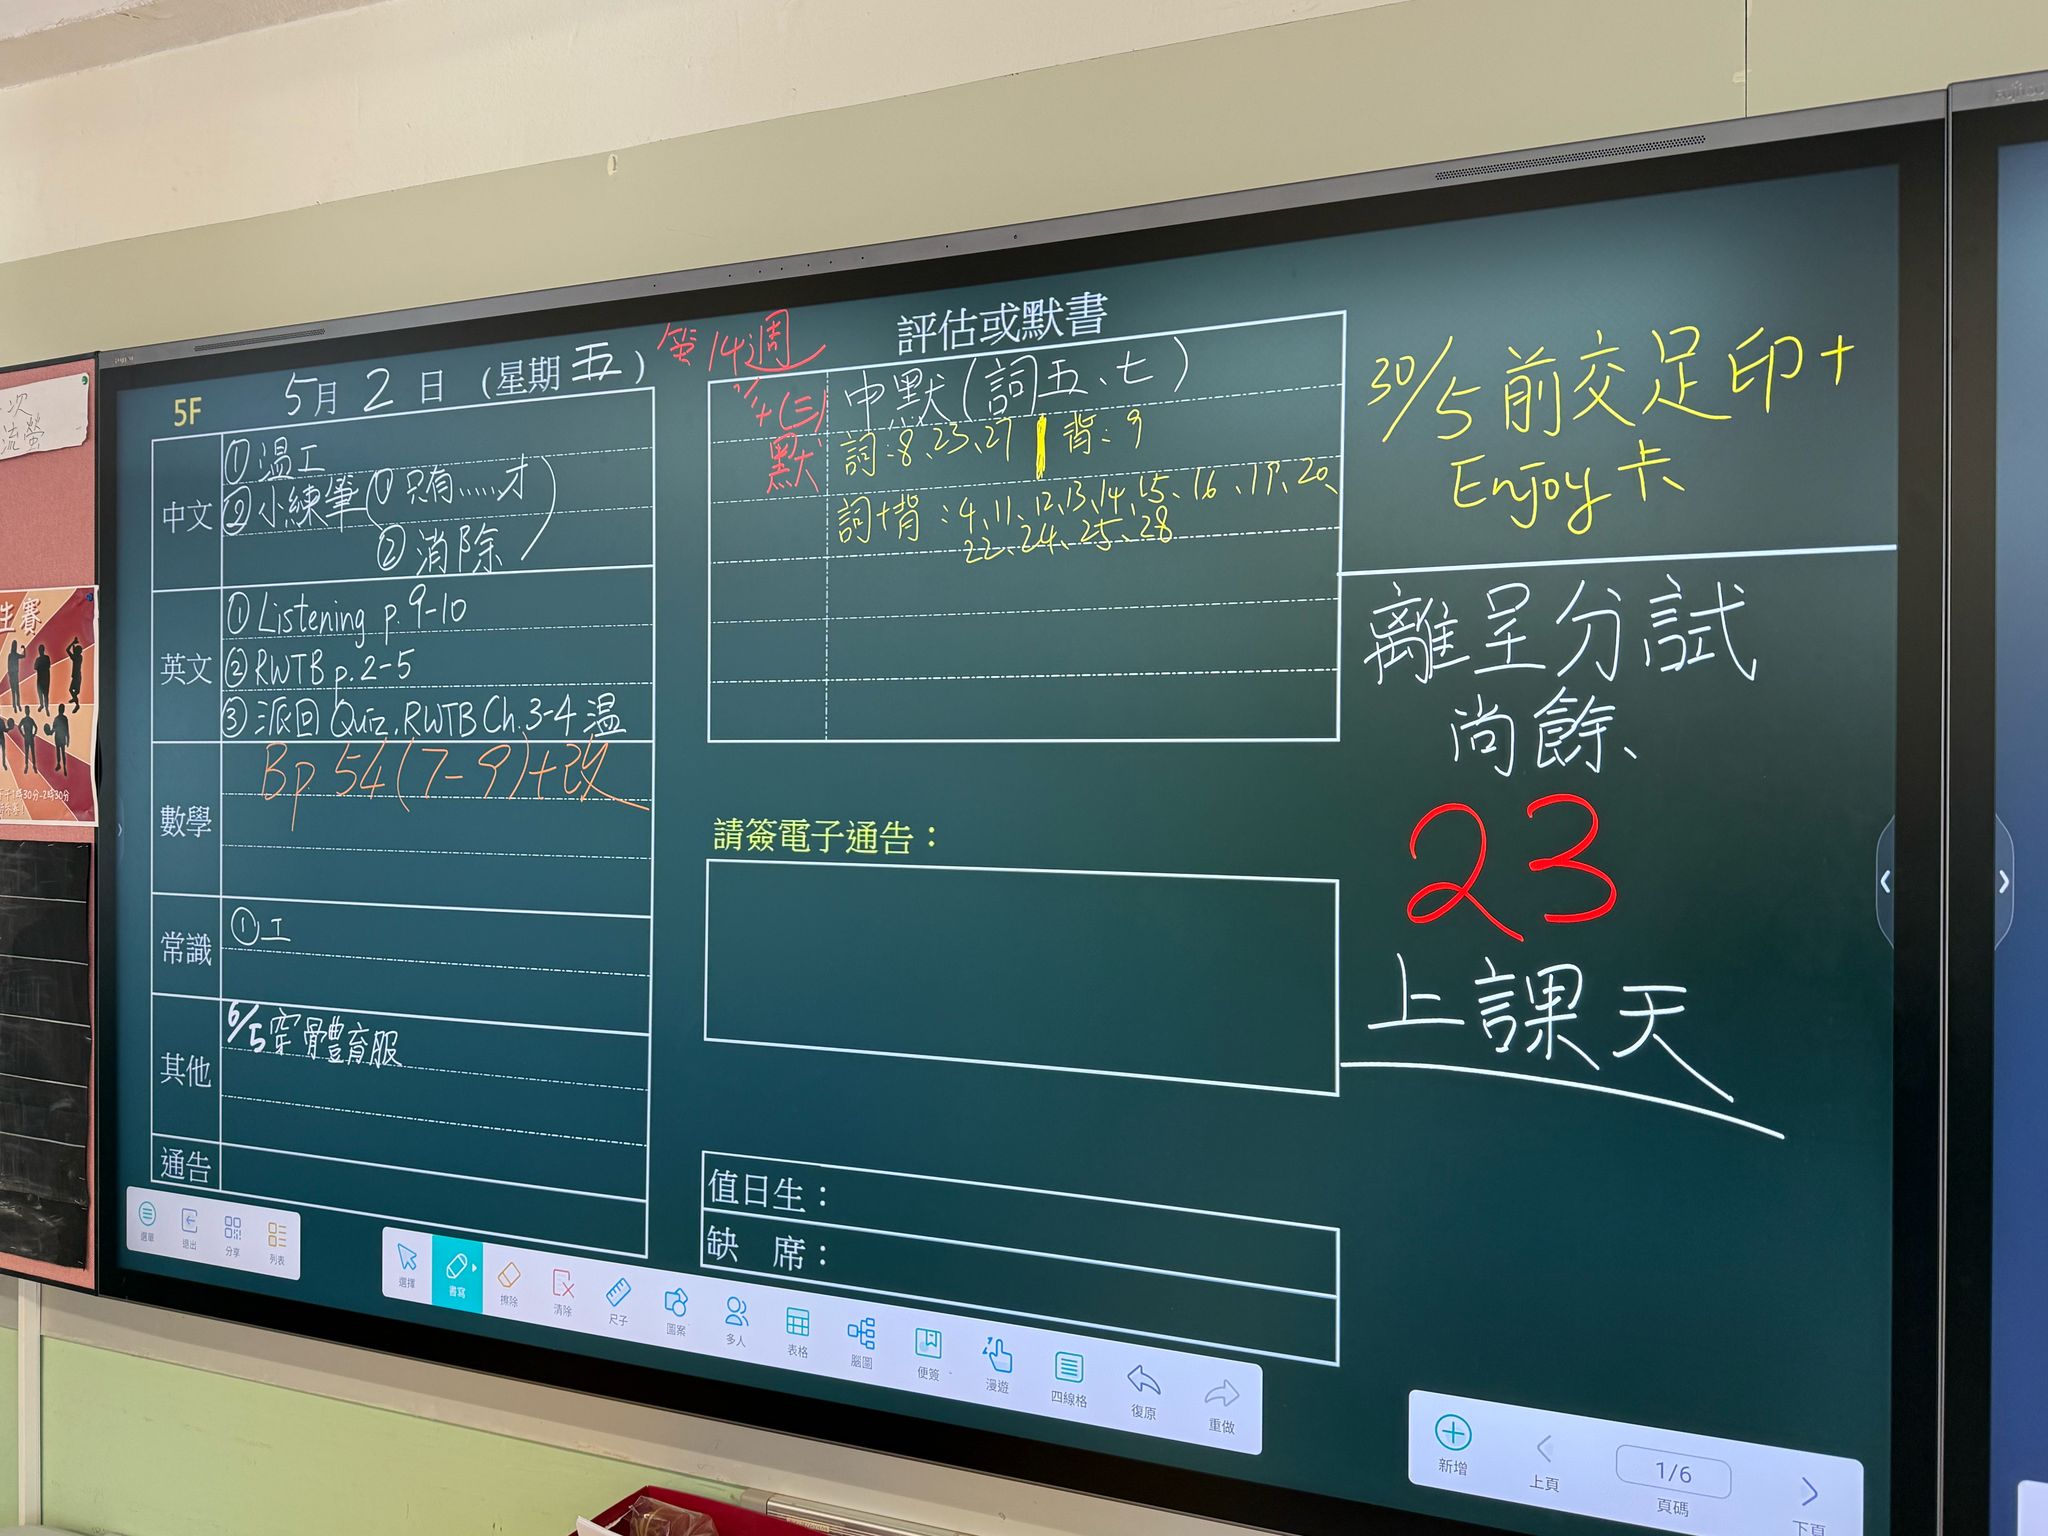 5F
5月2日 (星期五)
第14週
中文
①温工
②小練筆(①只有……才
②消除)
英文
①Listening p.9-10
②RWTB p.2-5
③派回 Quiz, RWTB Ch.3-4 温
數學
Bp 54(7-9)+改
常識
①工
其他
6/5 穿體育服
通告
評估或默書
(三)
默
中默(詞五、七)
詞:8、23、27 背:9
詞+背:4、11、12、13、14、15、16、17、20、
22、24、25、28
請簽電子通告:
值日生:
缺 席:
30/5前交足印+
Enjoy卡
離呈分試
尚餘
23
上課天
選單
退出
分享
列表
選擇
書寫
擦除
清除
尺子
圖案
多人
表格
腦圖
便簽
漫遊
四線格
復原
重做
新增
上頁
1/6
頁碼
下頁
次
流螢
生賽